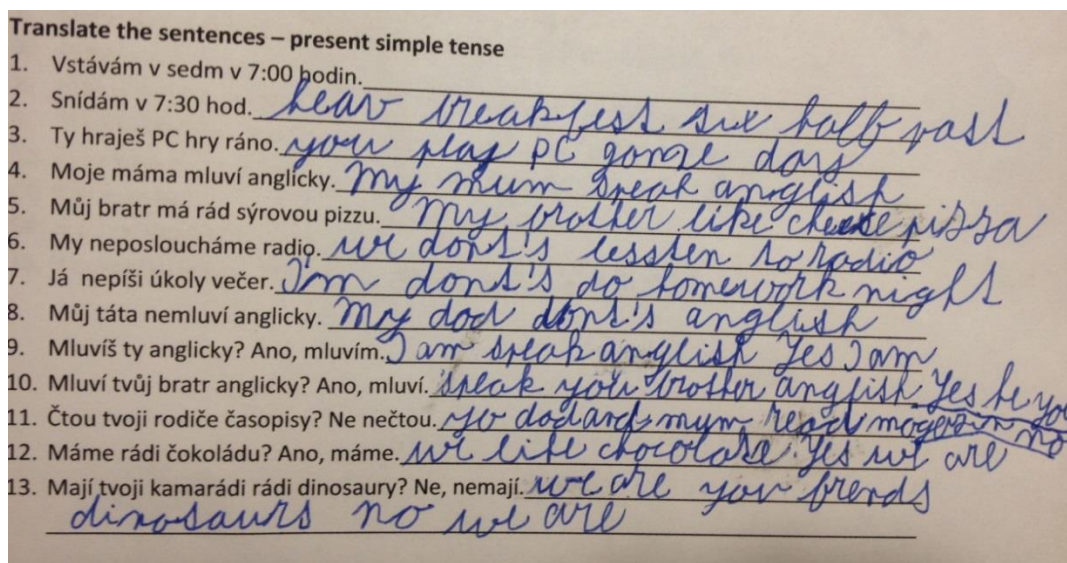 Translate the sentences – present simple tense
1. Vstávám v sedm v 7:00 hodin.
2. Snídám v 7:30 hod. heav breakfest six halb past
3. Ty hraješ PC hry ráno. you play PC gamze day
4. Moje máma mluví anglicky. My mum speak anglish
5. Můj bratr má rád sýrovou pizzu. My brother like cheese pizza
6. My neposloucháme radio. we dont's lessten to radio
7. Já nepíši úkoly večer. I'm dont's do homework night
8. Můj táta nemluví anglicky. My dad dont's anglish
9. Mluvíš ty anglicky? Ano, mluvím. I am speak anglish Yes I am
10. Mluví tvůj bratr anglicky? Ano, mluví. speak you brother anglish Yes he you
11. Čtou tvoji rodiče časopisy? Ne nečtou. yo dad and mum read mogezin no
12. Máme rádi čokoládu? Ano, máme. we like chocolate. Yes we are
13. Mají tvoji kamarádi rádi dinosaury? Ne, nemají. we are you frends
dinosaurs no we are